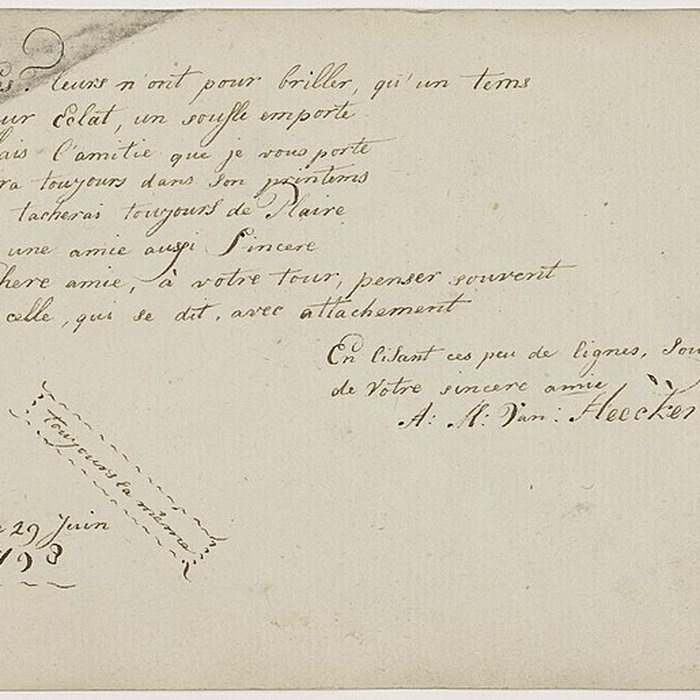 es. leurs n'ont pour briller, qu'un tems
ur Eclat, un soufle emporte
ais l'amitie que je vous porte
ra toujours dans son printems
tacherai toujours de Plaire
une amie aussi Sincere
here amie, à votre tour, penser souvent
celle, qui se dit, avec attachement
En lisant ces peu de lignes, sou
de Votre sincere amie
A: M: Van: Heecker
toujours la même
29 Juin
793